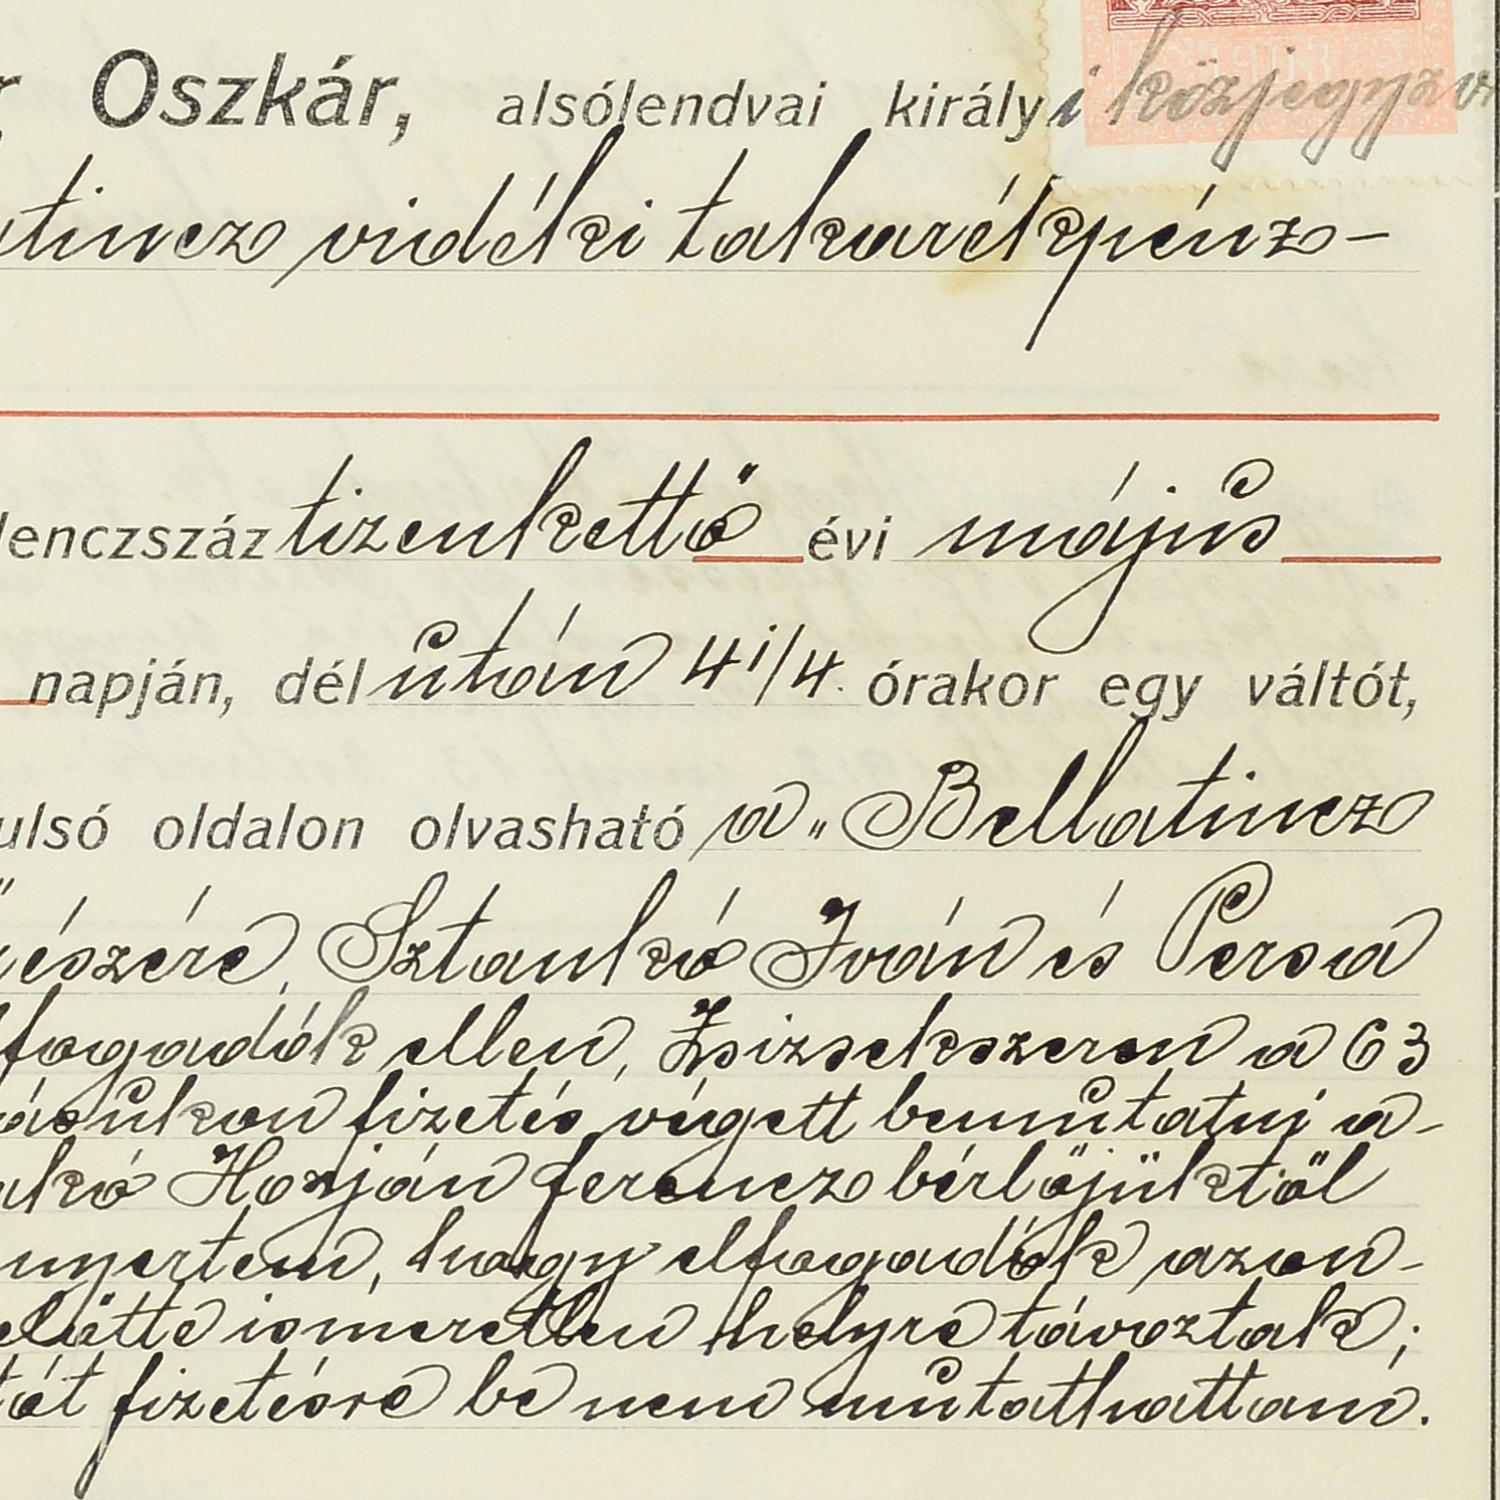 Oszkár, alsólendvai királyi közjegyző
tincz vidéki takarékpénz-
lenczszáz tizenkettő évi május
napján, délután 4 1/4. órakor egy váltót,
ulsó oldalon olvasható a „Bellatincz
részére, Sztankó Iván és Persa
fogadók ellen, Zsizsekszeren a 63
ásukon fizetés végett bemutatni a-
nkó Horján ferencz bérlőjüktől
nyertem, hogy elfogadók azon-
előtte ismeretlen helyre távoztak;
tót fizetésre be nem mutathattam.